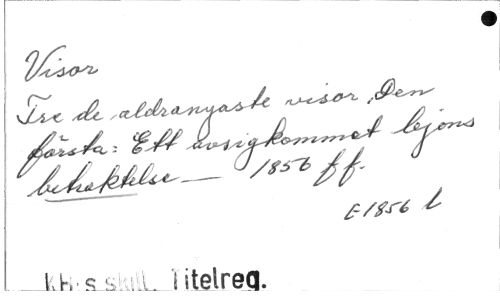 Visor
Tre de aldranyaste visor, Den
första: Ett avsigkommet lejons
betraktelse — 1856 ff.
E 1856 l
KH:s skill. Titelreg.